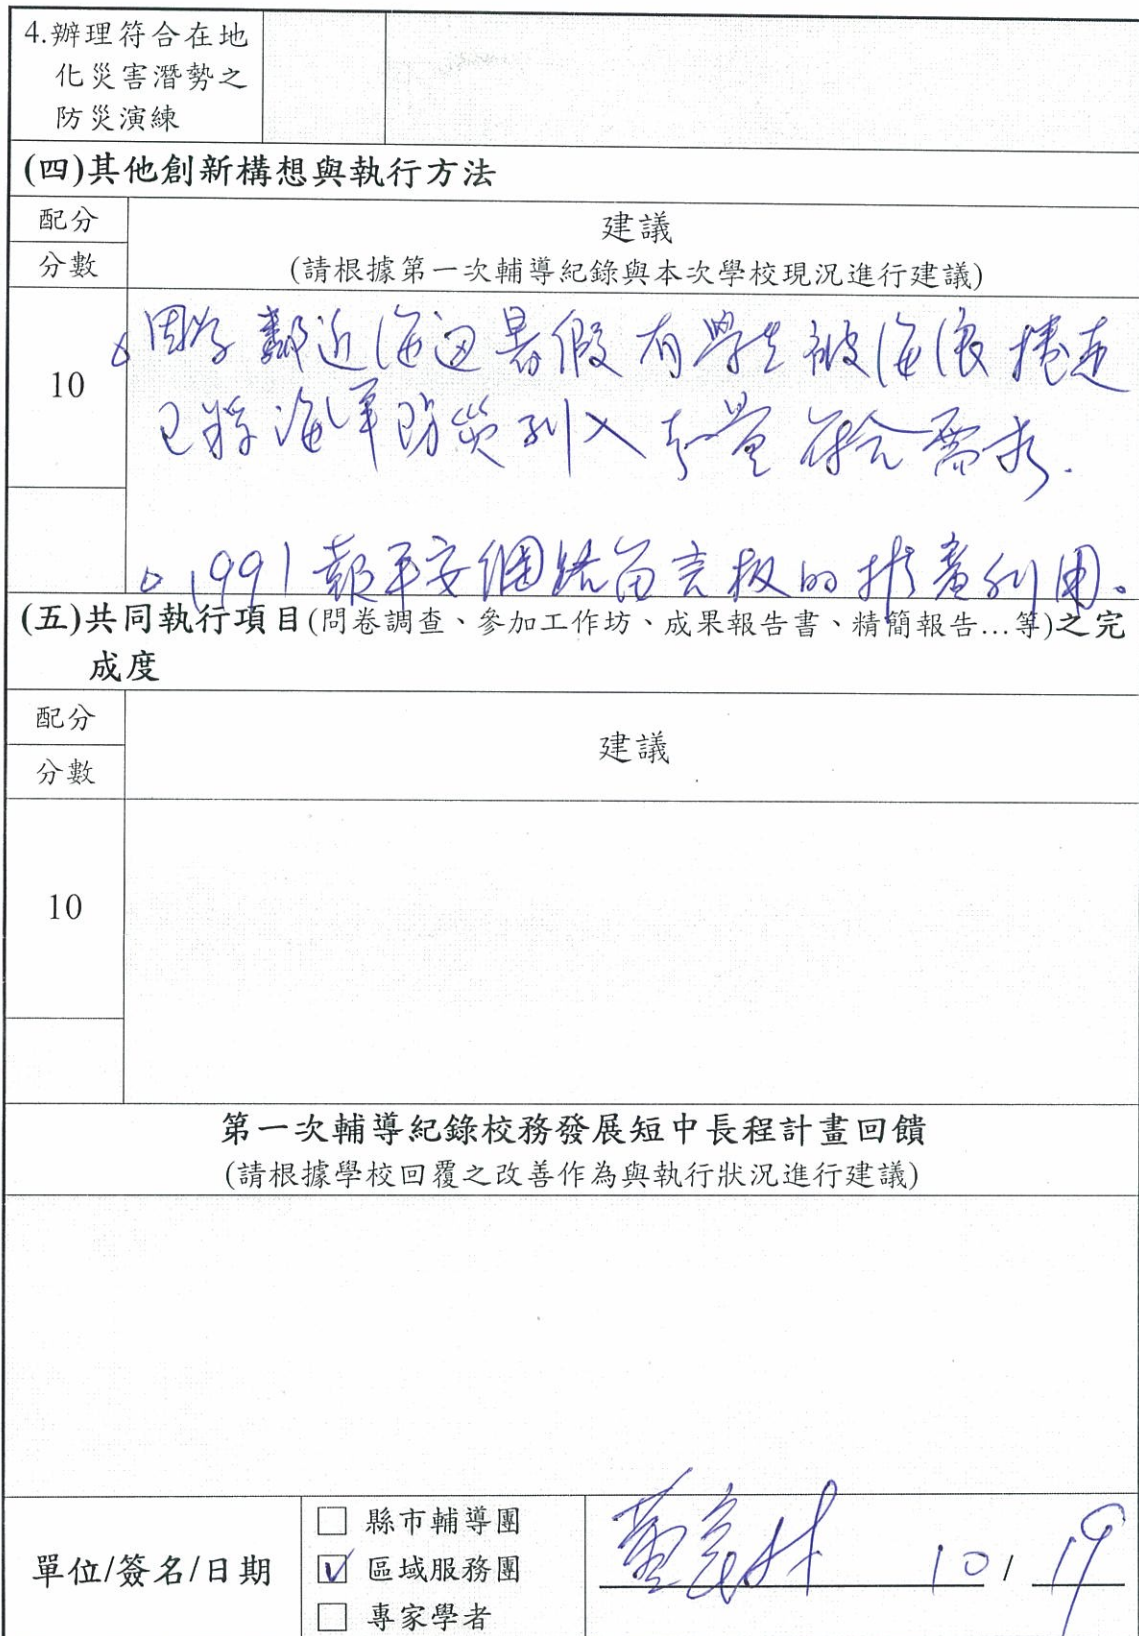 4.辦理符合在地
化災害潛勢之
防災演練
(四)其他創新構想與執行方法
配分
建議
分數
(請根據第一次輔導紀錄與本次學校現況進行建議)
10
鄰近海邊暑假有學生被海浪捲走
已將海洋防災列入 符合需求.
1991報平安網路留言板的推廣利用。
(五)共同執行項目(問卷調查、參加工作坊、成果報告書、精簡報告…等)之完
成度
配分
建議
分數
10
第一次輔導紀錄校務發展短中長程計畫回饋
(請根據學校回覆之改善作為與執行狀況進行建議)
單位/簽名/日期
□ 縣市輔導團
☑ 區域服務團
□ 專家學者
10 / 19